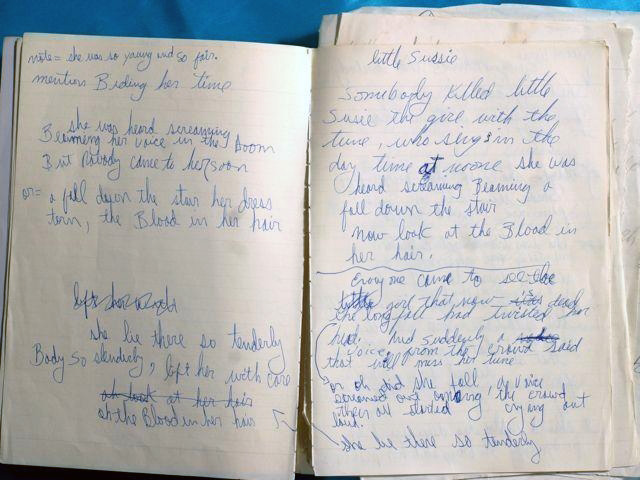 note = she was so young and so fair.
mention Biding her time
she was heard screaming
Beaming her voice in the Boom
But Nobody came to her soon
or = a fall down the stair her dress
torn, the Blood in her hair
left her
she lie there so tenderly
Body so slenderly, left her with care
oh look at her hair
oh the Blood in her hair
little Sussie
Somebody Killed little
Susie the girl with the
tune, who sings in the
day time at noone she was
heard screaming Beaming a
fall down the stair
now look at the Blood in
her hair.
Everyone came to see the
girl that now is dead
the long fall had twisted her
head. And suddenly a
voice from the crowd said
that will miss her tune
or oh did she fall, a voice
screamed out the crowd
then all started crying out
loud.
she lie there so tenderly